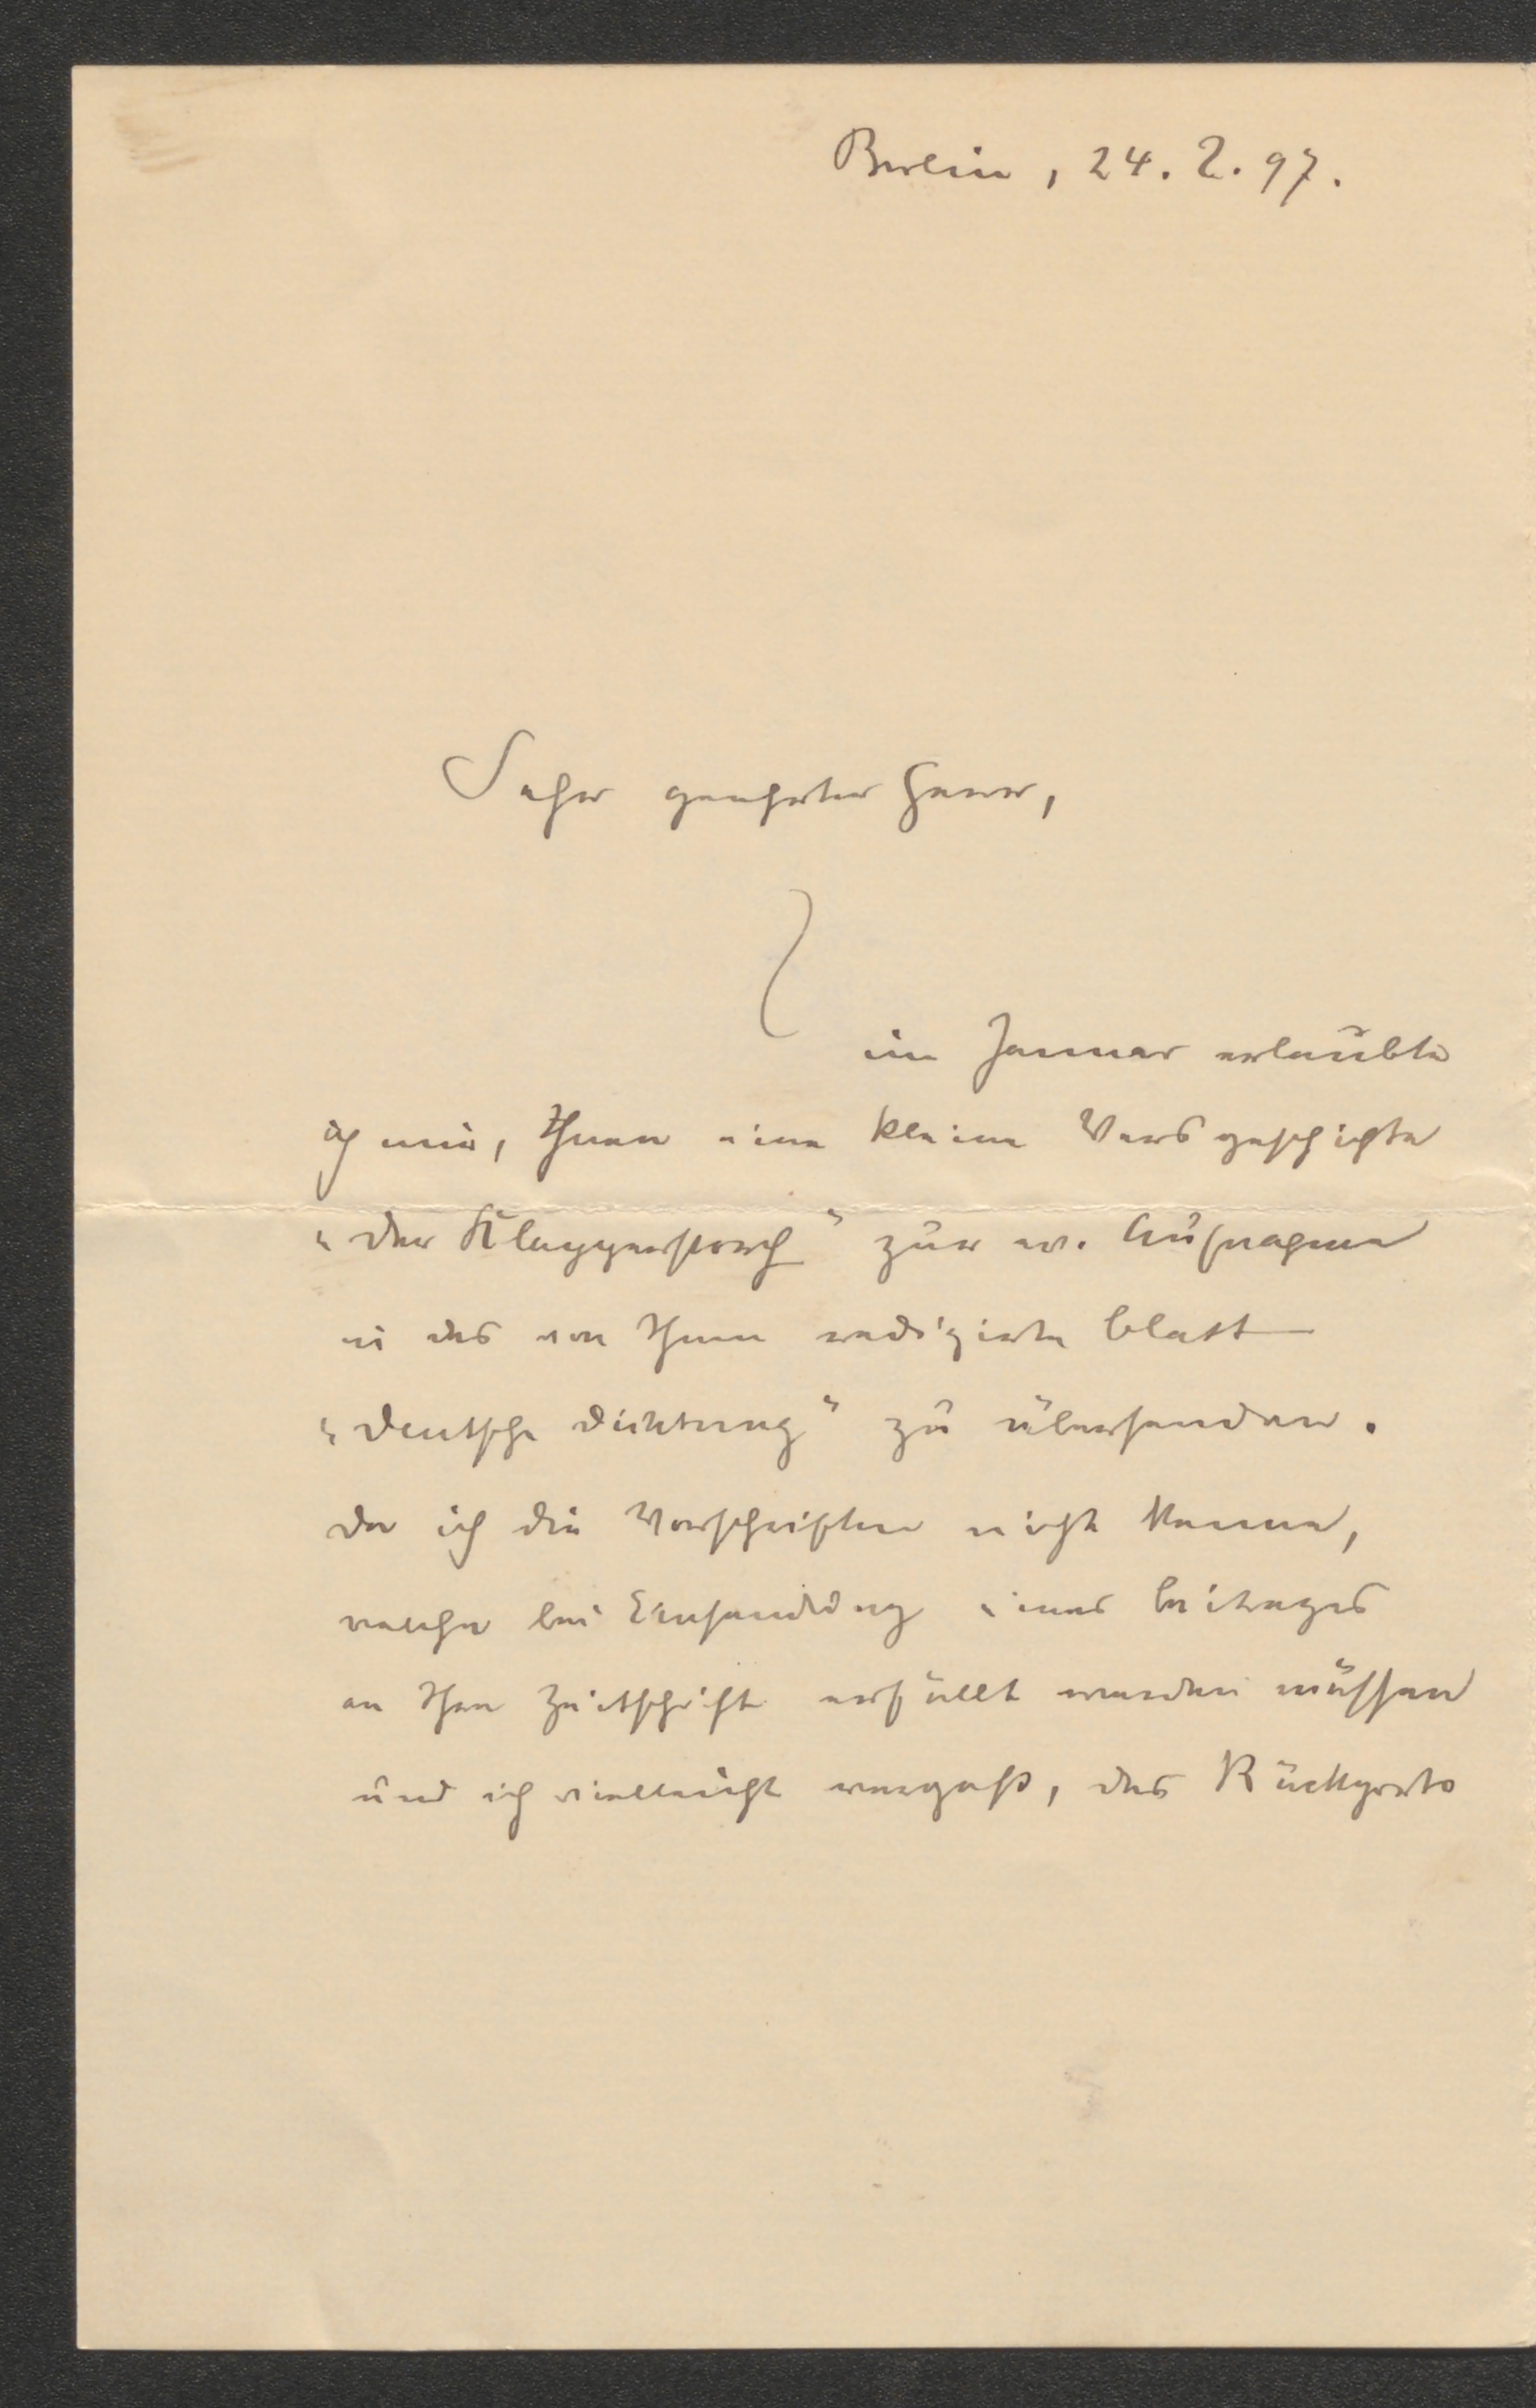 Berlin, 24. 2. 97.
Sehr geehrter Herr,
im Januar erlaubte
ich mir, Ihnen eine kleine Versgeschichte
„Der Klapperstorch" zur ev. Aufnahme
in das von Ihnen redigirte Blatt
„Deutsche Dichtung" zu übersenden.
Da ich die Vorschriften nicht kenne,
welche bei Einsendung eines Beitrages
an Ihre Zeitschrift erfüllt werden müssen
und ich vielleicht vergaß, das Rückporto